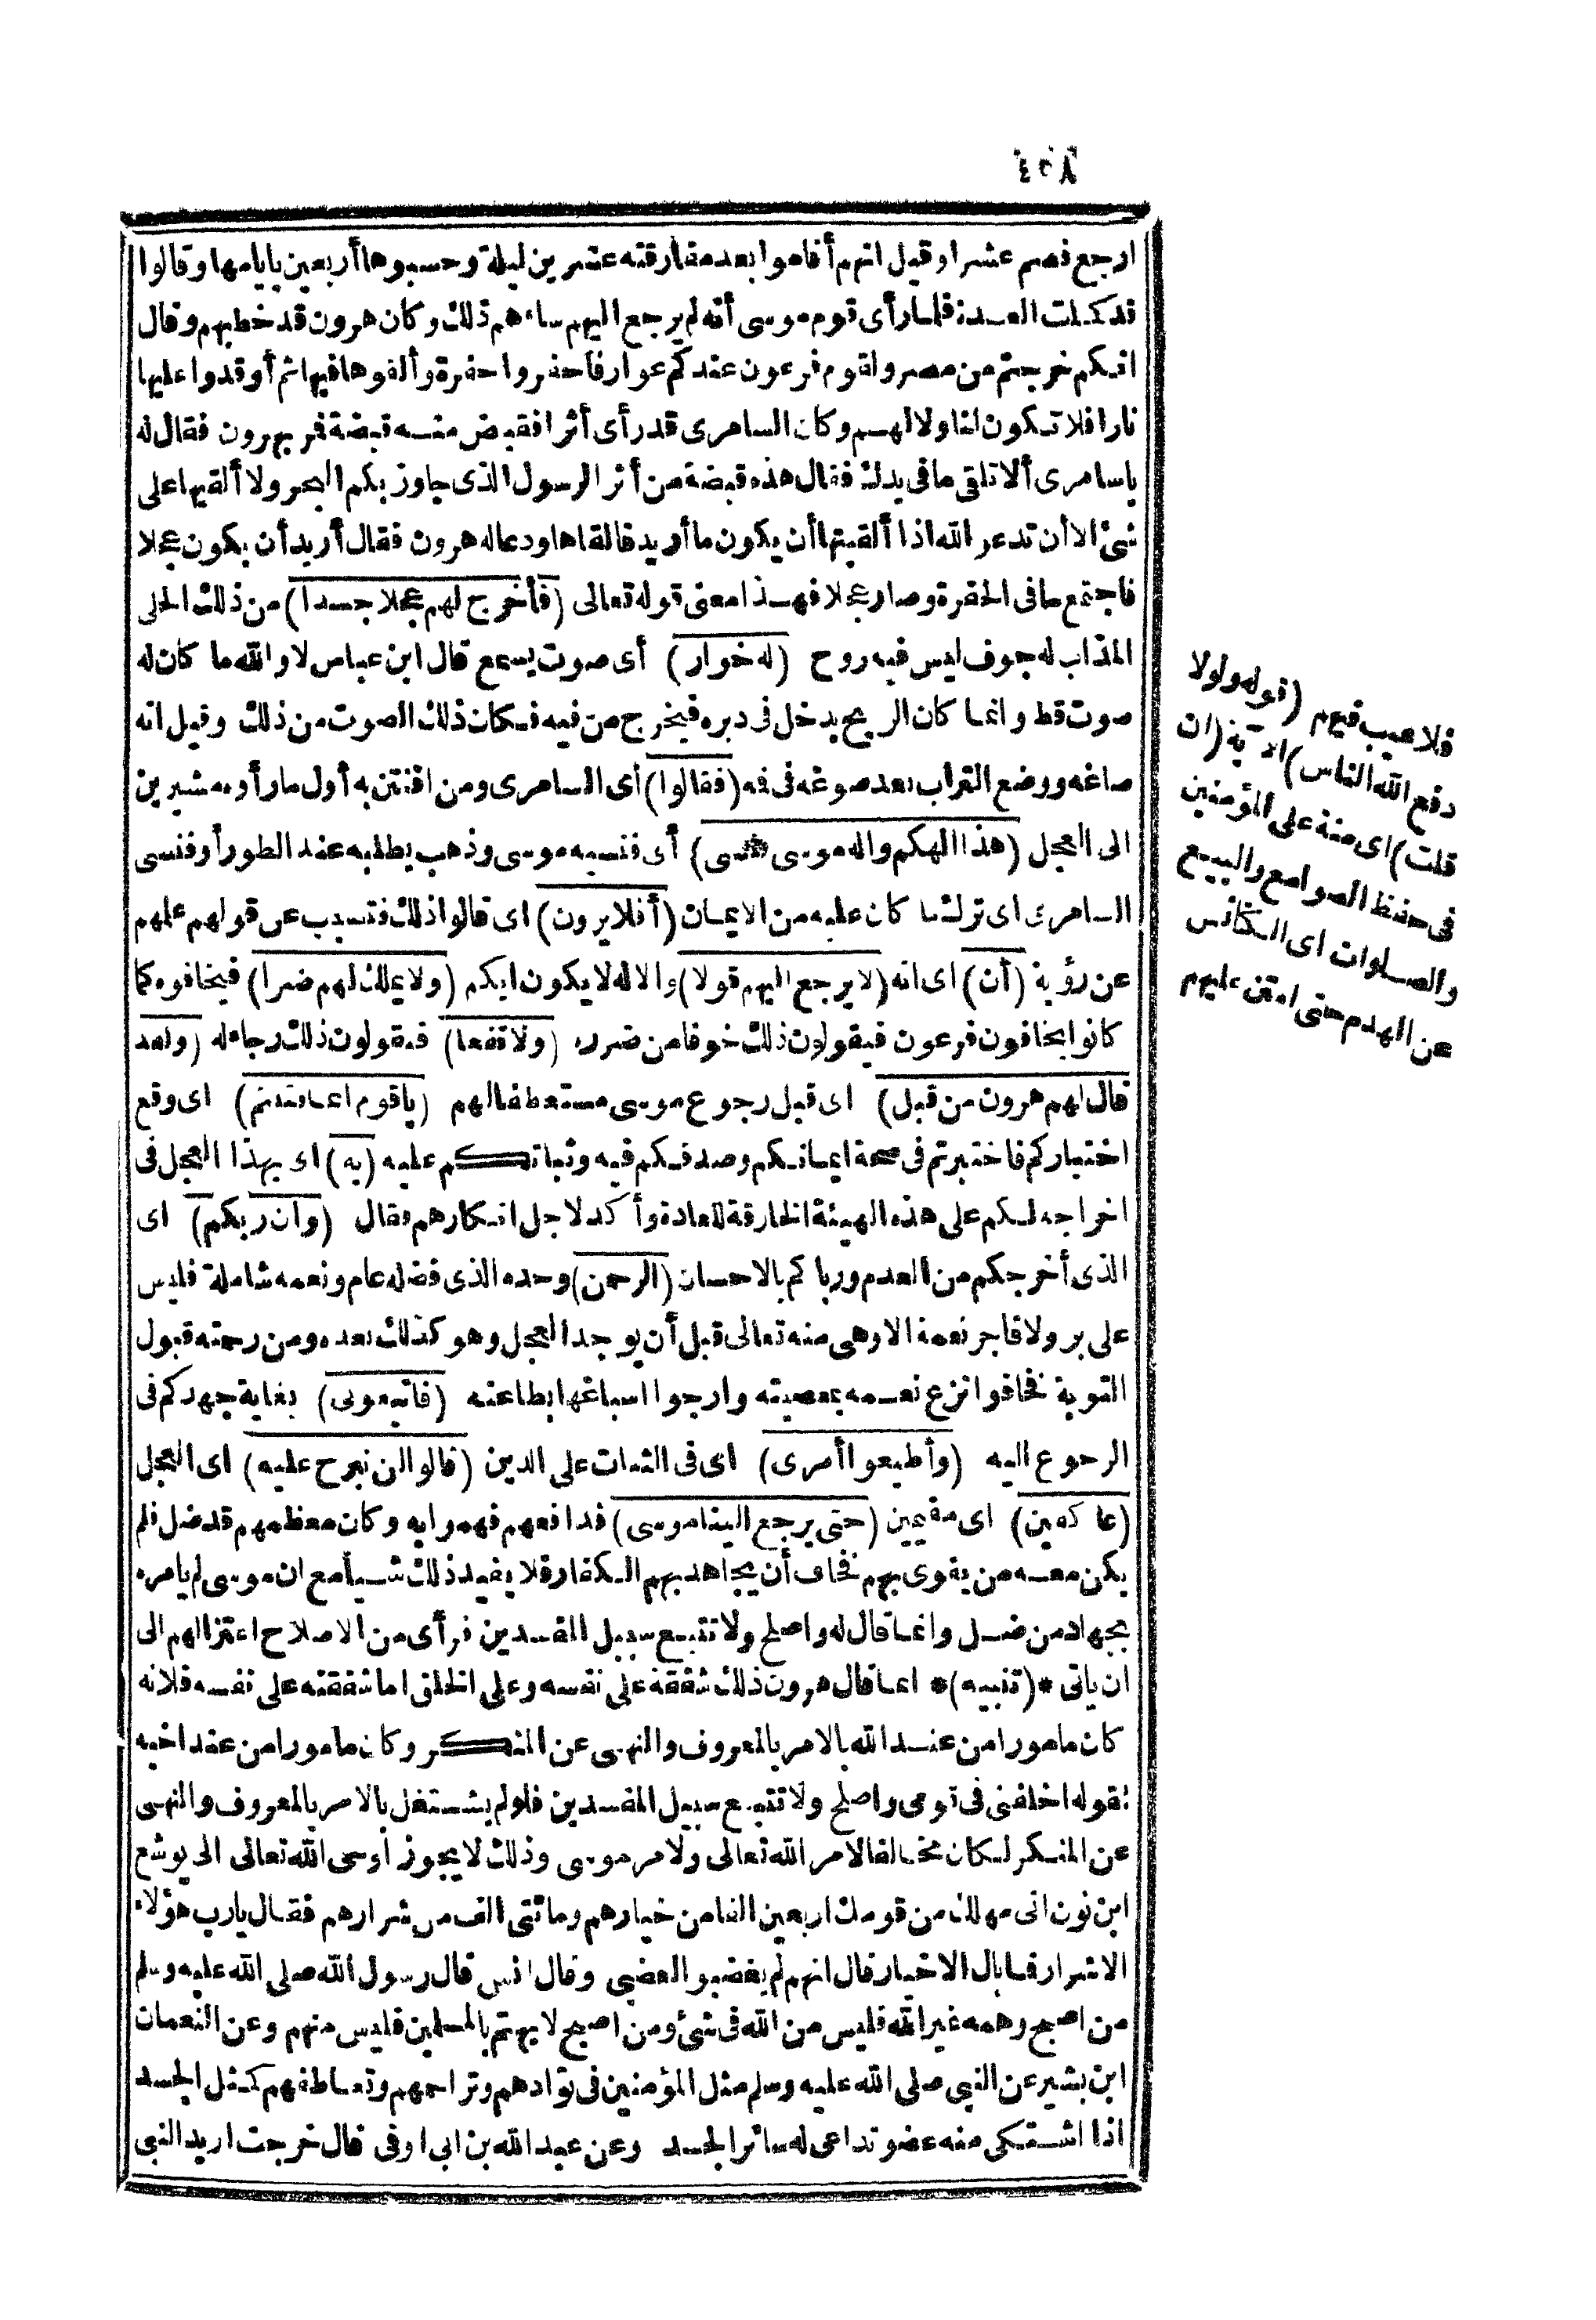 ٤٥٨
ارجع فصم عشرا وقيل انهم أقاموا بعد مفارقته عشرين ليلة وحسبوها أربعين بايامها وقالوا
قد كملت العدة فلما رأى قوم موسى أنه لم يرجع اليهم ساءهم ذلك وكان هرون قد خطبهم وقال
انكم خرجتم من مصر ولقوم فرعون عندكم عوار فاحفروا حفرة وألقوها فيها ثم أوقدوا عليها
نارا فلا تكون لنا ولا لهم وكان السامرى قد رأى أثرا فقبض منه قبضة فمر بهرون فقال له
ياسامرى ألا تلقى ما فى يدك فقال هذه قبضة من أثر الرسول الذى جاوز بكم البحر ولا ألقيها على
شئ الا أن تدعو الله اذا ألقيتها أن يكون ما أريد فالقاها ودعا له هرون فقال أريد أن يكون عجلا
فاجتمع ما فى الحفرة وصار عجلا فهذا معنى قوله تعالى (فأخرج لهم عجلا جسدا) من ذلك الحلى
المذاب له جوف ليس فيه روح (له خوار) أى صوت يسمع قال ابن عباس لا والله ما كان له
صوت قط وانما كان الريح يدخل فى دبره فيخرج من فيه فكان ذلك الصوت من ذلك وقيل انه
صاغه ووضع التراب بعد صوغه فى فمه (فقالوا) أى السامرى ومن افتتن به أول ما رأوه مشيرين
الى العجل (هذا الهكم واله موسى فنسى) أى فنسيه موسى وذهب يطلبه عند الطور أو فنسى
السامرى اى ترك ما كان عليه من الايمان (أفلا يرون) اى قالوا ذلك فتسبب عن قولهم عملهم
عن رؤية (أن) اى انه (لا يرجع اليهم قولا) والاله لا يكون ابكم (ولا يملك لهم ضرا) فيخافوه كما
كانوا يخافون فرعون فيقولون ذلك خوفا من ضرره (ولا نفعا) فيقولون ذلك رجاء له (ولقد
قال لهم هرون من قبل) اى قبل رجوع موسى مستعطفا لهم (ياقوم انما فتنتم) اى وقع
اختباركم فاختبرتم فى صحة ايمانكم وصدقكم فيه وثباتكم عليه (به) اى بهذا العجل فى
اخراجه لكم على هذه الهيئة الخارقة للعادة وأكد لاجل انكارهم فقال (وان ربكم) اى
الذى أخرجكم من العدم ورباكم بالاحسان (الرحمن) وحده الذى فضله عام ونعمه شاملة فليس
على بر ولا فاجر نعمة الا وهى منه تعالى قبل أن يوجد العجل وهو كذلك بعده ومن رحمته قبول
التوبة فخافوا نزع نعمه بمعصيته وارجوا اسباغها بطاعته (فاتبعونى) بغاية جهدكم فى
الرجوع اليه (وأطيعوا أمرى) اى فى الثبات على الدين (قالوا لن نبرح عليه) اى العجل
(عاكفين) اى مقيمين (حتى يرجع الينا موسى) فدافعهم فهموا به وكان معظمهم قد ضل فلم
يكن معه من يقوى بهم فخاف أن يجاهد بهم الكفار فلا يفيد ذلك شيأ مع ان موسى لم يامره
بجهاد من ضل وانما قال له واصلح ولا تتبع سبيل المفسدين فرأى من الاصلاح اعتزالهم الى
ان ياتى *(تنبيه)* انما قال هرون ذلك شفقة على نفسه وعلى الخلق اما شفقته على نفسه فلانه
كان مامورا من عند الله بالامر بالمعروف والنهى عن المنكر وكان مامورا من عند اخيه
بقوله اخلفنى فى قومى واصلح ولا تتبع سبيل المفسدين فلولم يشتغل بالامر بالمعروف والنهى
عن المنكر لكان مخالفا لامر الله تعالى ولامر موسى وذلك لا يجوز أوحى الله تعالى الى يوشع
ابن نون انى مهلك من قومك اربعين الفا من خيارهم ومائتى الف من شرارهم فقال يارب هؤلاء
الاشرار فما بال الاخيار قال انهم لم يغضبوا لغضبى وقال انس قال رسول الله صلى الله عليه وسلم
من اصبح وهمه غير الله فليس من الله فى شئ ومن اصبح لا يهتم بالمسلمين فليس منهم وعن النعمان
ابن بشير عن النبى صلى الله عليه وسلم مثل المؤمنين فى توادهم وتراحمهم وتعاطفهم كمثل الجسد
اذا اشتكى منه عضو تداعى له سائر الجسد وعن عبد الله بن ابى اوفى قال خرجت اريد النبى
فلا عيب فيهم (قوله ولولا
دفع الله الناس) الآية (ان
قلت) اى منة على المؤمنين
فى حفظ الصوامع والبيع
والصلوات اى الكنائس
عن الهدم حتى امتن عليهم